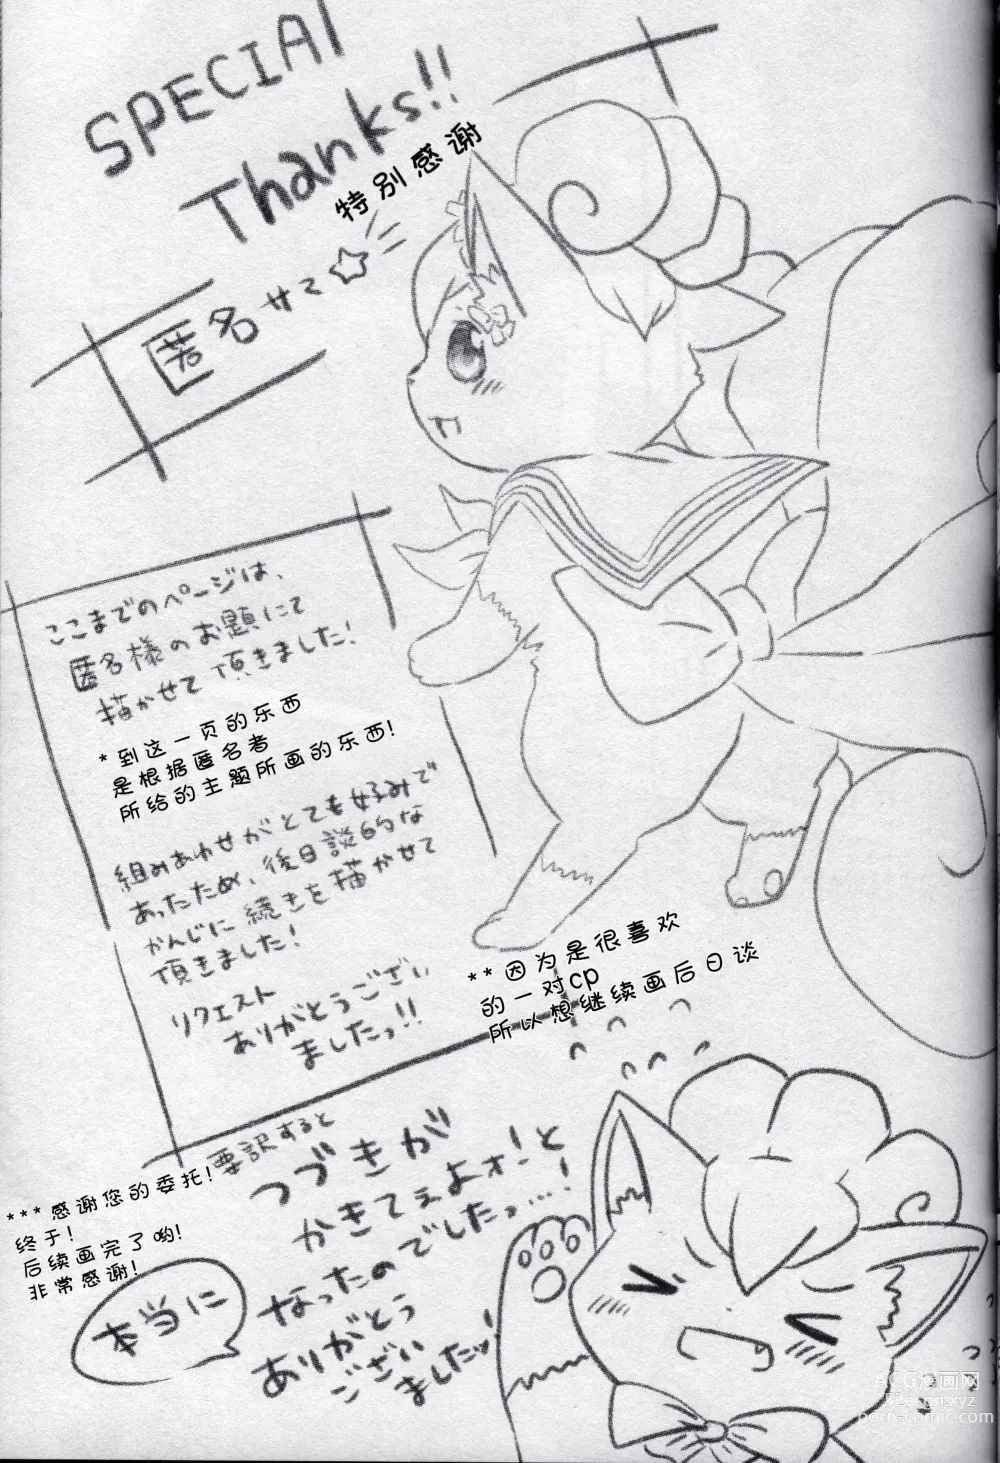 SPECIAL
Thanks!!
特别感谢
匿名サマ☆
ここまでのページは、
匿名様のお題にて
描かせて頂きました!
*到这一页的东西
是根据匿名者
所给的主题所画的东西!
組みあわせがとても好みで
あったため、後日談的な
かんじに続きを描かせて
頂きました!
リクエスト
ありがとうござい
ましたっ!!
**因为是很喜欢
的一对cp
所以想继续画后日谈
要訳すると
つづきが
かきてぇよォー!と
なったのでしたっ…!
***感谢您的委托!
终于!
后续画完了哟!
非常感谢!
本当に
ありがとう
ござい
ましたッ!
ACG漫画网
52acgn.xyz
porn-comic.com